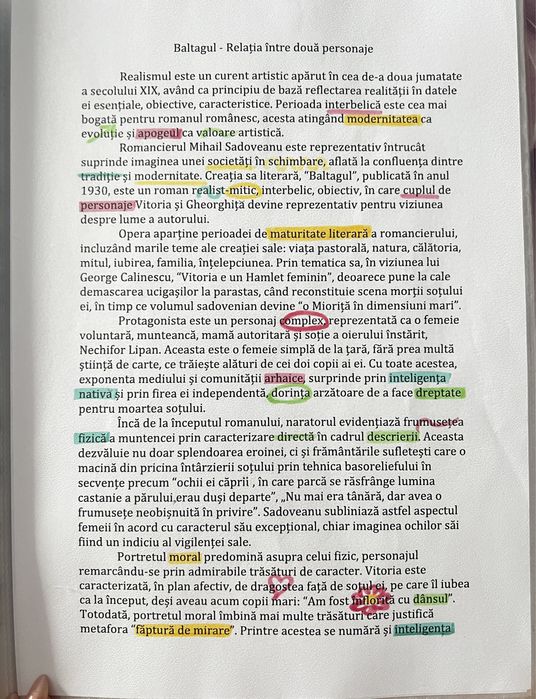 Baltagul - Relația între două personaje
Realismul este un curent artistic apărut în cea de-a doua jumatate
a secolului XIX, având ca principiu de bază reflectarea realității în datele
ei esențiale, obiective, caracteristice. Perioada interbelică este cea mai
bogată pentru romanul românesc, acesta atingând modernitatea ca
evoluție și apogeul ca valoare artistică.
Romancierul Mihail Sadoveanu este reprezentativ întrucât
suprinde imaginea unei societăți în schimbare, aflată la confluența dintre
tradiție și modernitate. Creația sa literară, "Baltagul", publicată în anul
1930, este un roman realist-mitic, interbelic, obiectiv, în care cuplul de
personaje Vitoria și Gheorghița devine reprezentativ pentru viziunea
despre lume a autorului.
Opera aparține perioadei de maturitate literară a romancierului,
incluzând marile teme ale creației sale: viața pastorală, natura, călătoria,
mitul, iubirea, familia, înțelepciunea. Prin tematica sa, în viziunea lui
George Calinescu, "Vitoria e un Hamlet feminin", deoarece pune la cale
demascarea ucigașilor la parastas, când reconstituie scena morții soțului
ei, în timp ce volumul sadovenian devine "o Mioriță în dimensiuni mari".
Protagonista este un personaj complex, reprezentată ca o femeie
voluntară, munteancă, mamă autoritară și soție a oierului înstărit,
Nechifor Lipan. Aceasta este o femeie simplă de la țară, fără prea multă
știință de carte, ce trăiește alături de cei doi copii ai ei. Cu toate acestea,
exponenta mediului și comunității arhaice, surprinde prin inteligența
nativă și prin firea ei independentă, dorința arzătoare de a face dreptate
pentru moartea soțului.
Încă de la începutul romanului, naratorul evidențiază frumusețea
fizică a muntencei prin caracterizare directă în cadrul descrierii. Aceasta
dezvăluie nu doar splendoarea eroinei, ci și frământările sufletești care o
macină din pricina întârzierii soțului prin tehnica basoreliefului în
secvențe precum "ochii ei căprii , în care parcă se răsfrânge lumina
castanie a părului,erau duși departe", „Nu mai era tânără, dar avea o
frumusețe neobișnuită în privire". Sadoveanu subliniază astfel aspectul
femeii în acord cu caracterul său excepțional, chiar imaginea ochilor săi
fiind un indiciu al vigilenței sale.
Portretul moral predomină asupra celui fizic, personajul
remarcându-se prin admirabile trăsături de caracter. Vitoria este
caracterizată, în plan afectiv, de dragostea față de soțul ei, pe care îl iubea
ca la început, deși aveau acum copii mari: "Am fost înflorită cu dânsul".
Totodată, portretul moral îmbină mai multe trăsături care justifică
metafora "făptură de mirare". Printre acestea se numără și inteligența